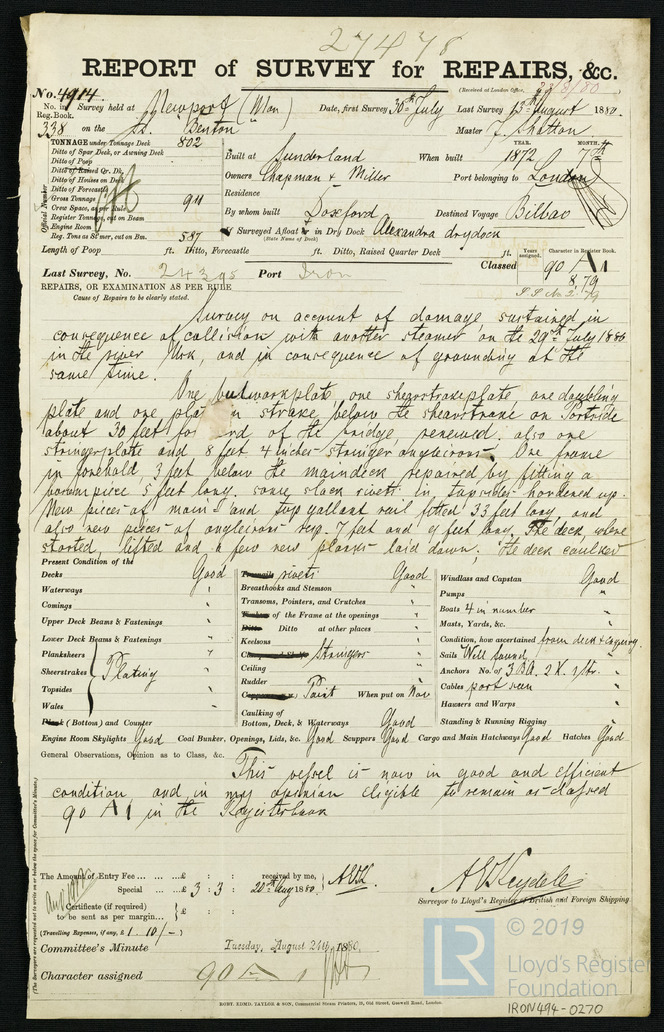 27478
REPORT of SURVEY for REPAIRS, &c.
(Received at London Office, /8/80)
No. 4914. Survey held at Newport (Mon) Date, first Survey 30th July Last Survey 13th August 1880.
No. in Reg. Book.
338 on the Benton Master
TONNAGE under Tonnage Deck 802
Ditto of Spar Deck, or Awning Deck
Ditto of Poop
Ditto of Raised Qr. Dk.
Ditto of Houses on Deck
Ditto of Forecastle
Gross Tonnage 911
Crew Space, as per Rule
Register Tonnage, cut on Beam
Engine Room
Reg. Tons as Stmr, cut on Bm. 587
Official Number
YEAR. MONTH.
Built at Sunderland When built 1872 7th
Owners Chapman & Miller Port belonging to London
Residence
By whom built Doxford Destined Voyage Bilbao
If Surveyed Afloat or in Dry Dock Alexandra drydock
(State Name of Dock)
Length of Poop ft. Ditto, Forecastle ft. Ditto, Raised Quarter Deck ft.
Years assigned. Character in Register Book.
Classed 90 A1
8,79
Last Survey, No. 24395 Port Iron
REPAIRS, OR EXAMINATION AS PER RULE
Cause of Repairs to be clearly stated.
Survey on account of damage sustained in
consequence of collision with another steamer on the 29th July 1880
in the river Usk, and in consequence of grounding at the
same time.
One bulwarkplate, one sheerstrakeplate, one doubling
plate and one plate in strake below the sheerstrake on Portside
about 30 feet forward of the bridge, renewed. also one
stringerplate and 8 feet 4 inches stringer angleiron. One frame
in forehold 3 feet below the maindeck repaired by fitting a
piece 5 feet long. some slack rivets in topsides hardened up.
New pieces of main and topgallant rail fitted 33 feet long, and
also new pieces of angleiron 7 feet and 9 feet long. The deck, where
started, lifted and a few new planks laid down; the deck caulked
Present Condition of the
Decks Good
Waterways "
Comings "
Upper Deck Beams & Fastenings "
Lower Deck Beams & Fastenings "
Planksheers "
Sheerstrakes Plating "
Topsides "
Wales "
Plank (Bottom) and Counter "
Treenails rivets Good
Breasthooks and Stemson "
Transoms, Pointers, and Crutches "
Timbers of the Frame at the openings "
Ditto Ditto at other places "
Keelsons "
Stringers "
Ceiling "
Rudder "
Paint When put on Now
Caulking of Bottom, Deck, & Waterways Good
Windlass and Capstan Good
Pumps "
Boats 4 in number "
Masts, Yards, &c. "
Condition, how ascertained from deck &
Sails Well found "
Anchors No. of 3 B.A. 2 K. 1 Str. "
Cables part seen "
Hawsers and Warps "
Standing & Running Rigging "
Engine Room Skylights Good Coal Bunker, Openings, Lids, &c. Good Scuppers Good Cargo and Main Hatchways Good Hatches Good
General Observations, Opinion as to Class, &c.
This vessel is now in good and efficient
condition and in my opinion eligible to remain as classed
90 A1 in the Registerbook
The Amount of Entry Fee ... £ : : received by me,
Special ... £ 3 : 3 : 20th Aug 1880.
Certificate (if required) to be sent as per margin... £ : :
(Travelling Expenses, if any, £ 1. 10/-)
Surveyor to Lloyd's Register of British and Foreign Shipping.
Committee's Minute Tuesday, August 24th 1880.
Character assigned 90 A 1
(The Surveyors are requested not to write on or below the space for Committee's Minute.)
ROBT. EDMD. TAYLOR & SON, Commercial Steam Printers, 19, Old Street, Goswell Road, London.
LR
© 2019
Lloyd's Register
Foundation
IRON494-0270